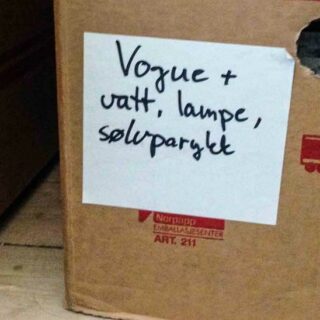 Vogue +
vatt, lampe,
sølvparykk
Norpapp
EMBALLASJESENTER
ART. 211